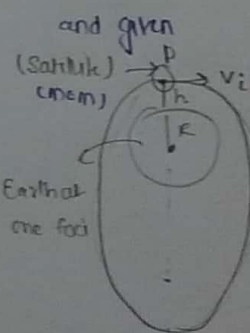 and given
P
(Satllite)
(mem)
Vi
h
R
Earth at
one foci